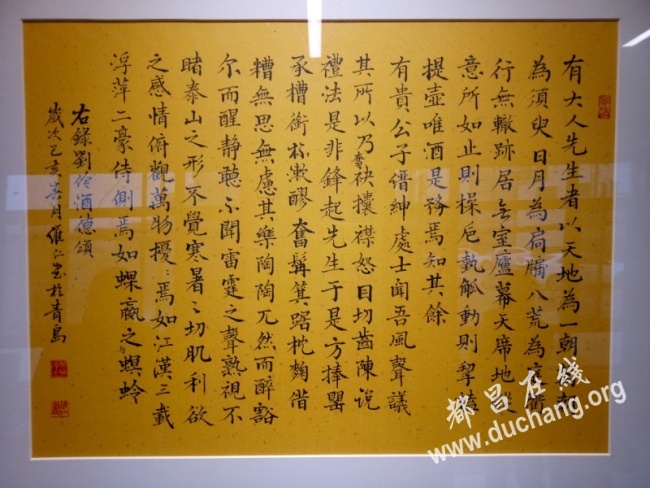 有大人先生者以天地為一朝萬期
為須臾日月為扃牖八荒為庭衢
行無轍跡居無室廬幕天席地縱
意所如止則操卮執觚動則挈榼
提壺唯酒是務焉知其餘
有貴公子縉紳處士聞吾風聲議
其所以乃奮袂攘襟怒目切齒陳說
禮法是非鋒起先生于是方捧罌
承槽銜杯漱醪奮髯箕踞枕麴借
糟無思無慮其樂陶陶兀然而醉豁
尔而醒靜聽不聞雷霆之聲熟視不
睹泰山之形不覺寒暑之切肌利欲
之感情俯觀萬物擾擾焉如江漢三載
浮萍二豪侍側焉如蜾蠃之與螟蛉
右錄劉伶酒德頌
歲次乙亥月維仁書於青島
都昌在线
www.duchang.org